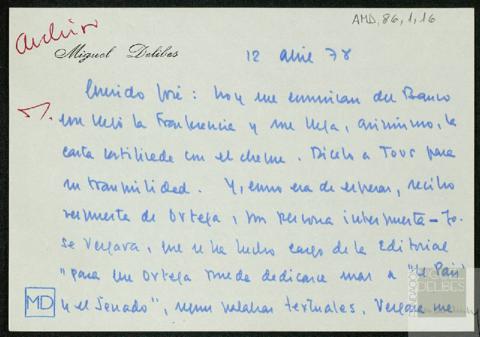 AMD, 86, 1, 16
Archivo
Miguel Delibes
12 abril 78
Querido José: hoy me comunican del Banco
que llegó la transferencia y me llega, asimismo, la
carta certificada con el cheque. Díselo a Tous para
su tranquilidad. Y, como era de esperar, recibo
respuesta de Ortega, por persona interpuesta – Jo-
sé Vergara, que se ha hecho cargo de la Editorial
"para que Ortega pueda dedicarse más a "El País"
y el Senado", según palabras textuales. Vergara me
MD
DELIBES